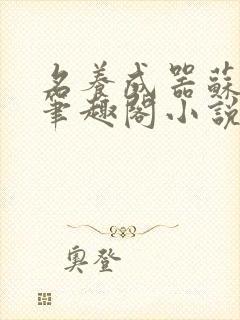 名養成器蘇
筆趣閣小說
奧登